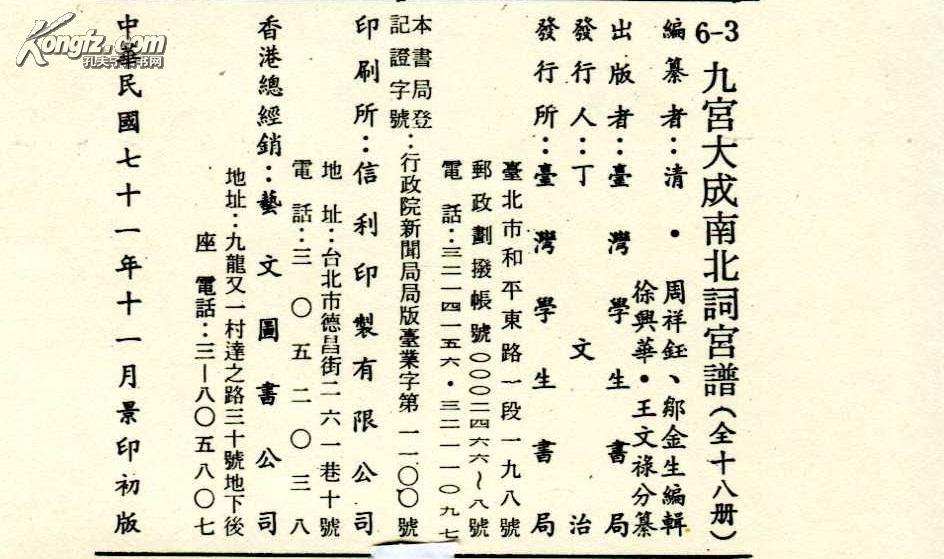 6-3
九宮大成南北詞宮譜(全十八册)
編纂者:清•周祥鈺、鄒金生編輯
徐興華•王文祿分纂
出版者:臺灣學生書局
發行人:丁文治
發行所:臺灣學生書局
臺北市和平東路一段一九八號
郵政劃撥帳號〇〇〇二四六六~八號
電話:三二一四一五六•三二一一〇九七
本書局登
記證字號:行政院新聞局局版臺業字第一一〇〇號
印刷所:信利印製有限公司
地址:台北市德昌街二六一巷十號
電話:三〇五二〇三八
香港總經銷:藝文圖書公司
地址:九龍又一村達之路三十號地下後
座 電話:三—八〇五八〇七
中華民國七十一年十一月景印初版
Kongfz.com
孔夫子旧书网